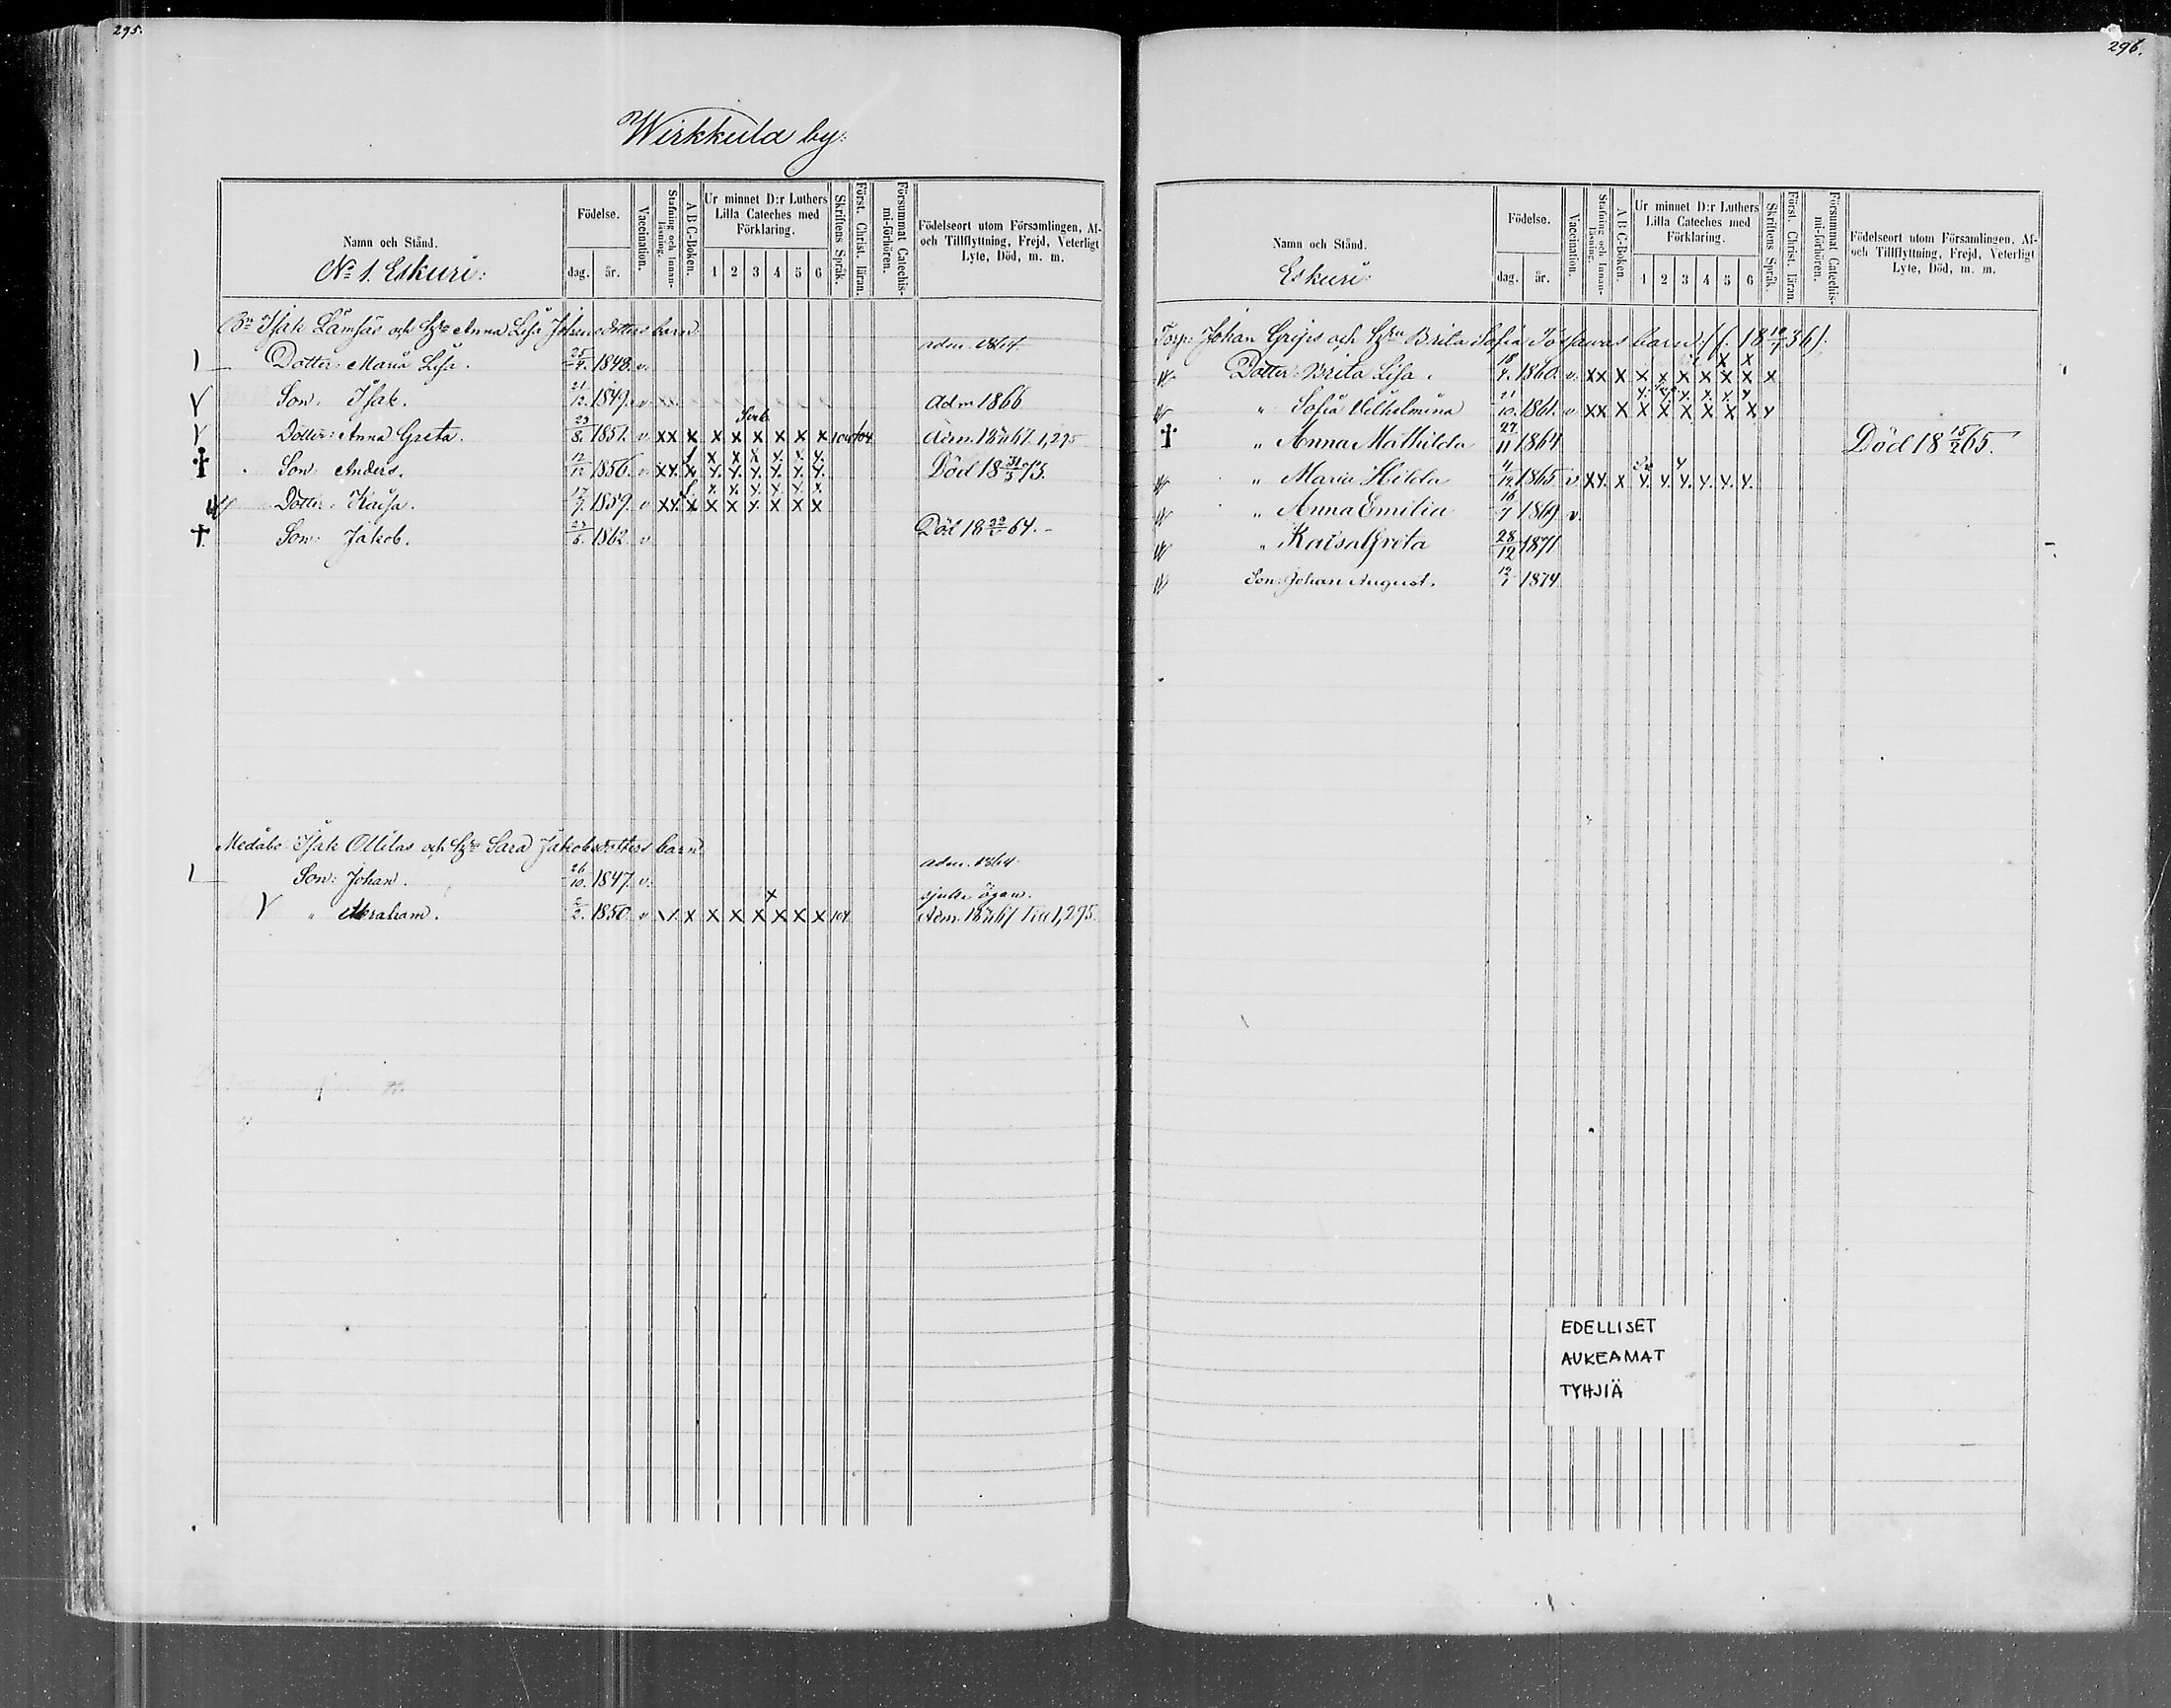 295.
Wirkkula by:
Namn och Stånd.
No 1. Eskuri:
Födelse.
dag. år.
Vaccination.
Stafning och Innanläsning.
A B C-Boken.
Ur minnet D:r Luthers Lilla Cateches med Förklaring.
1 2 3 4 5 6
Skriftens Språk.
Först. Christ. läran.
Försummat Catechismi-förhören.
Födelseort utom Församlingen, Af- och Tillflyttning, Frejd, Veterligt Lyte, Död, m. m.
Isak Lämsäs och Anna Lisa Johansdotters barn
Dotter: Maria Lisa. 25/4. 1848. v. adm. 1864.
Son. Isak. 21/12. 1849. v. Adm 1866
Dotter: Anna Greta. 29/8. 1851. v. xx x x x x x x x 104 104 Adm. 67. 1,295
Son: Anders. 12/12 1856. v. Död 18 31/5 73.
Dotter: Kaisa. 17/7. 1859. v
Son: Jakob. 1862. v Död 18 64.
Isak Ollilas och Sara Jakobsdotters barn
Son: Johan. 26/10. 1847. v. adm. 1864.
sjuka ögon.
" Abraham. 1850. v x x x x x x x 104 Adm. 67 1,295.
296.
Namn och Stånd.
Eskuri:
Födelse.
dag. år.
Vaccination.
Stafning och Innanläsning.
A B C-Boken.
Ur minnet D:r Luthers Lilla Cateches med Förklaring.
1 2 3 4 5 6
Skriftens Språk.
Först. Christ. läran.
Försummat Catechismi-förhören.
Födelseort utom Församlingen, Af- och Tillflyttning, Frejd, Veterligt Lyte, Död, m. m.
Torp: Johan och Brita Sofia barn
Dotter: Brita Lisa. 1860. v. xx x x x x x x x x
" Sofia Wilhelmina 21/10. 1861. v xx x x x x x x x
" Anna Mathilda 27/11 1864 Död 18 15/2 65.
" Maria Hilda 4/12 1865 v
" Anna Emilia 1869 v.
" Kaisa Greta 28/12 1871
Son: Johan August. 1874
EDELLISET
AUKEAMAT
TYHJIÄ